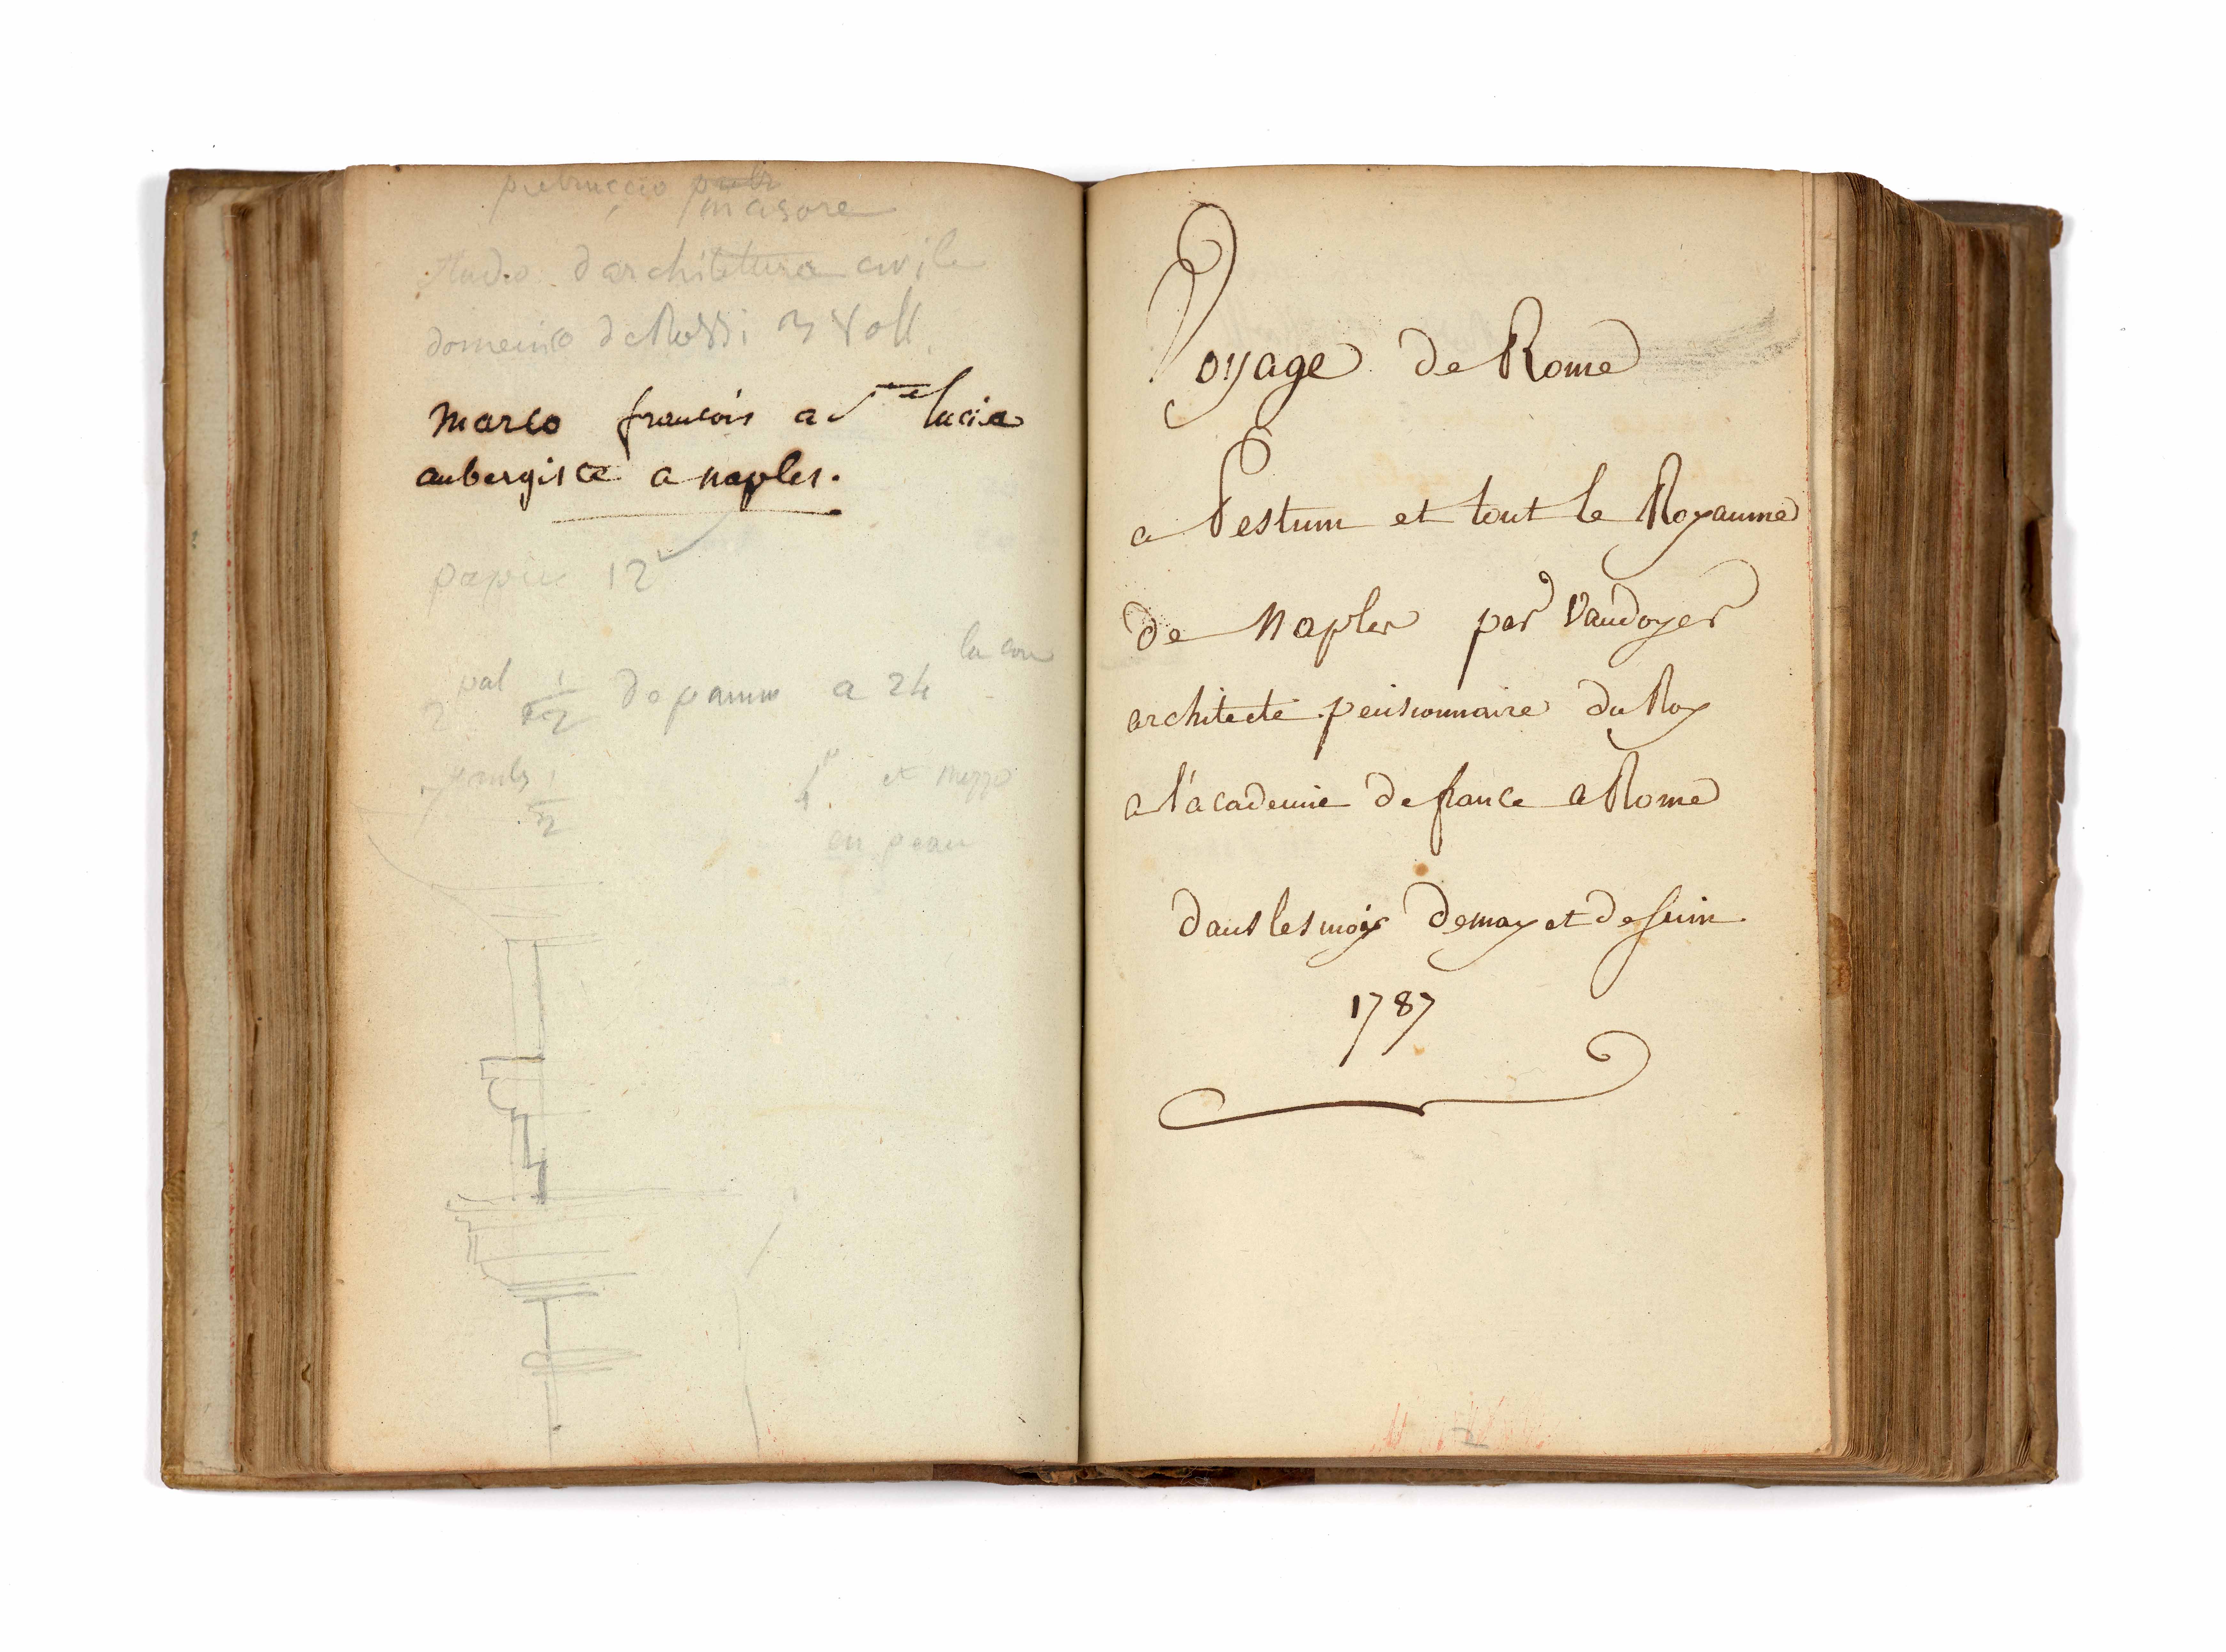 masore
studio d'architettura civile
domenico de Rossi 3 Voll.
Marco françois a Ste lucie
aubergiste a naples.
papier 12
la
2 pal 1/2 de a 24
7 1/2 1 et mezzo
en peau
Voyage de Rome
a Pestum et tout le Royaume
de Naples par Vaudoyer
architecte pensionnaire du Roy
a l'academie de france a Rome
dans les mois de may et de Juin.
1787